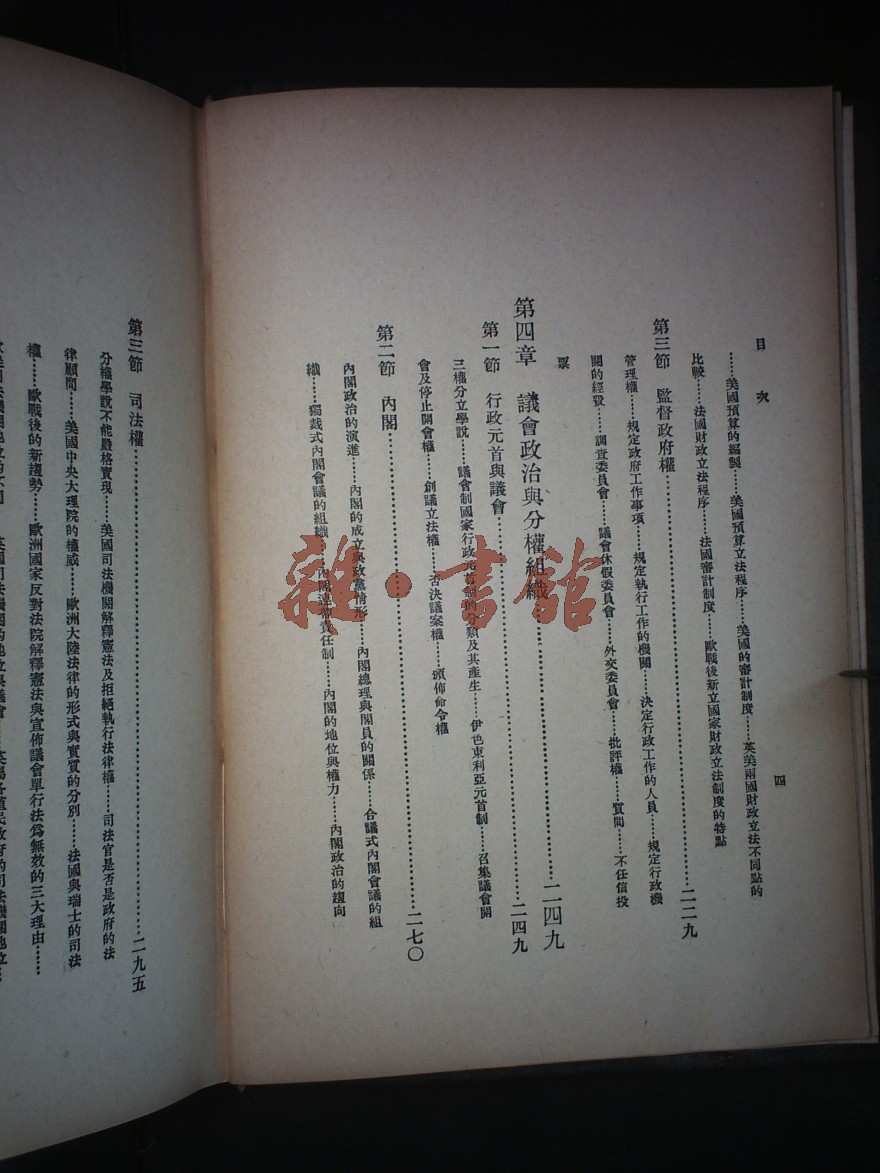 目次
四
……美國預算的編製……美國預算立法程序……美國的審計制度……英美兩國財政立法不同點的
比較……法國財政立法程序……法國審計制度……歐戰後新立國家財政立法制度的特點
第三節 監督政府權……二二九
管理權……規定政府工作事項……規定執行工作的機關……決定行政工作的人員……規定行政機
關的經費……調查委員會……議會休假委員會……外交委員會……批評權……質問……不任信投
票
第四章 議會政治與分權組織……二四九
第一節 行政元首與議會……二四九
三權分立學說……議會制國家行政元首制的分類及其產生……伊色束利亞元首制……召集議會開
會及停止開會權……創議立法權……否決議案權……頒佈命令權
第二節 內閣……二七〇
內閣政治的演進……內閣的成立與政黨情形……內閣總理與閣員的關係……合議式內閣會議的組
織……獨裁式內閣會議的組織……內閣連帶責任制……內閣的地位與權力……內閣政治的趨向
第三節 司法權……二九五
分權學說不能嚴格實現……美國司法機關解釋憲法及拒絕執行法律權……司法官是否是政府的法
律顧問……美國中央大理院的權威……歐洲大陸法律的形式與實質的分別……法國與瑞士的司法
權……歐戰後的新趨勢……歐洲國家反對法院解釋憲法與宣佈議會單行法為無效的三大理由……
雜·書館